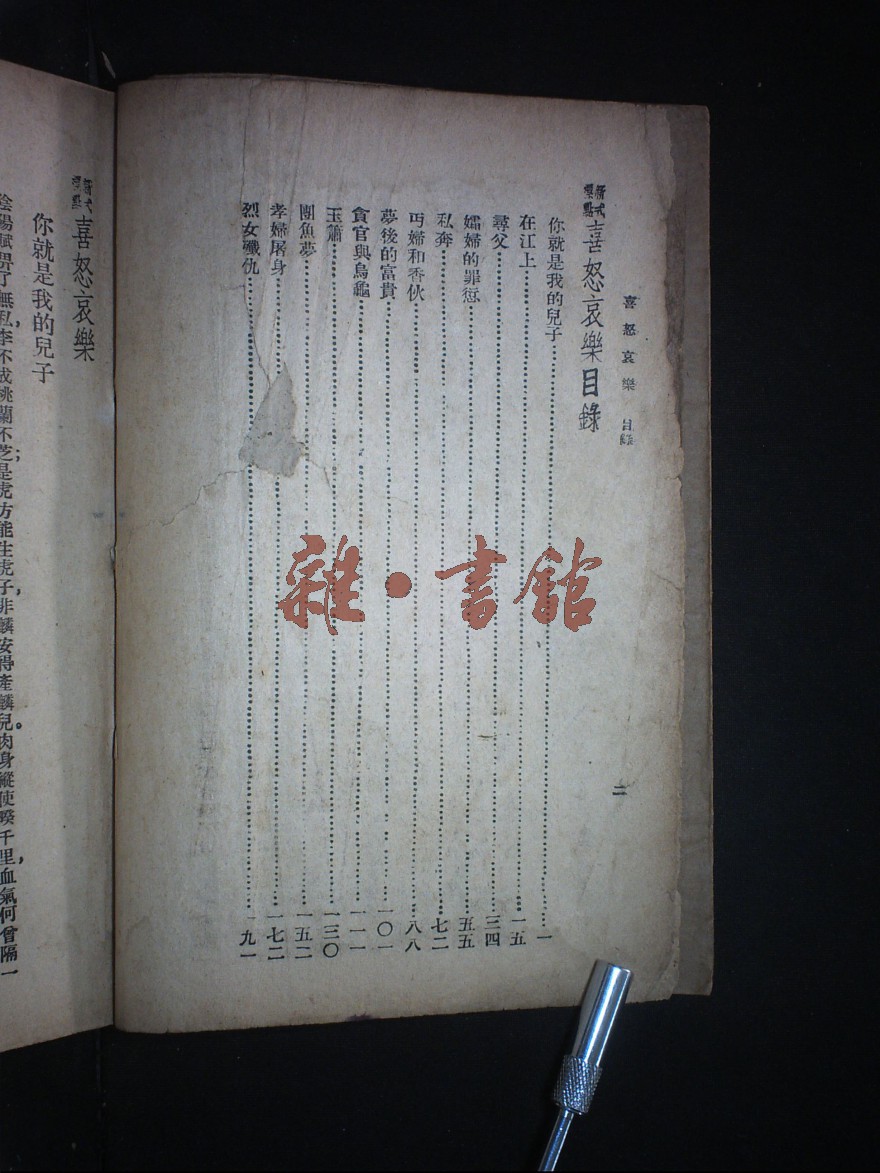 喜怒哀樂 目錄
新式標點 喜怒哀樂目錄
你就是我的兒子……一
在江上……一五
尋父……三四
孀婦的罪愆……五五
私奔……七二
丐婦和香伙……八八
夢後的富貴……一〇一
貪官與烏龜……一一一
玉簫……一三〇
團魚夢……一五二
孝婦屠身……一七二
烈女殲仇……一九一
二
新式標點 喜怒哀樂
你就是我的兒子
陰陽賦畀了無私,李不成桃蘭不芝;是虎方能生虎子,非麟安得產麟兒。肉身縱使暌千里,血氣何曾隔一
雜·書館